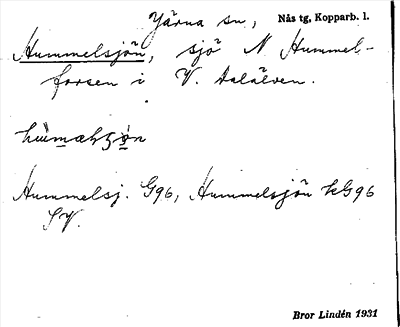 Järna sn, Nås tg, Kopparb. l.
Hummelsjön, sjö N Hummel-
forsen i V. Dalälven.
Hummelsj. G96, Hummelsjön kG96
SV.
Bror Lindén 1931